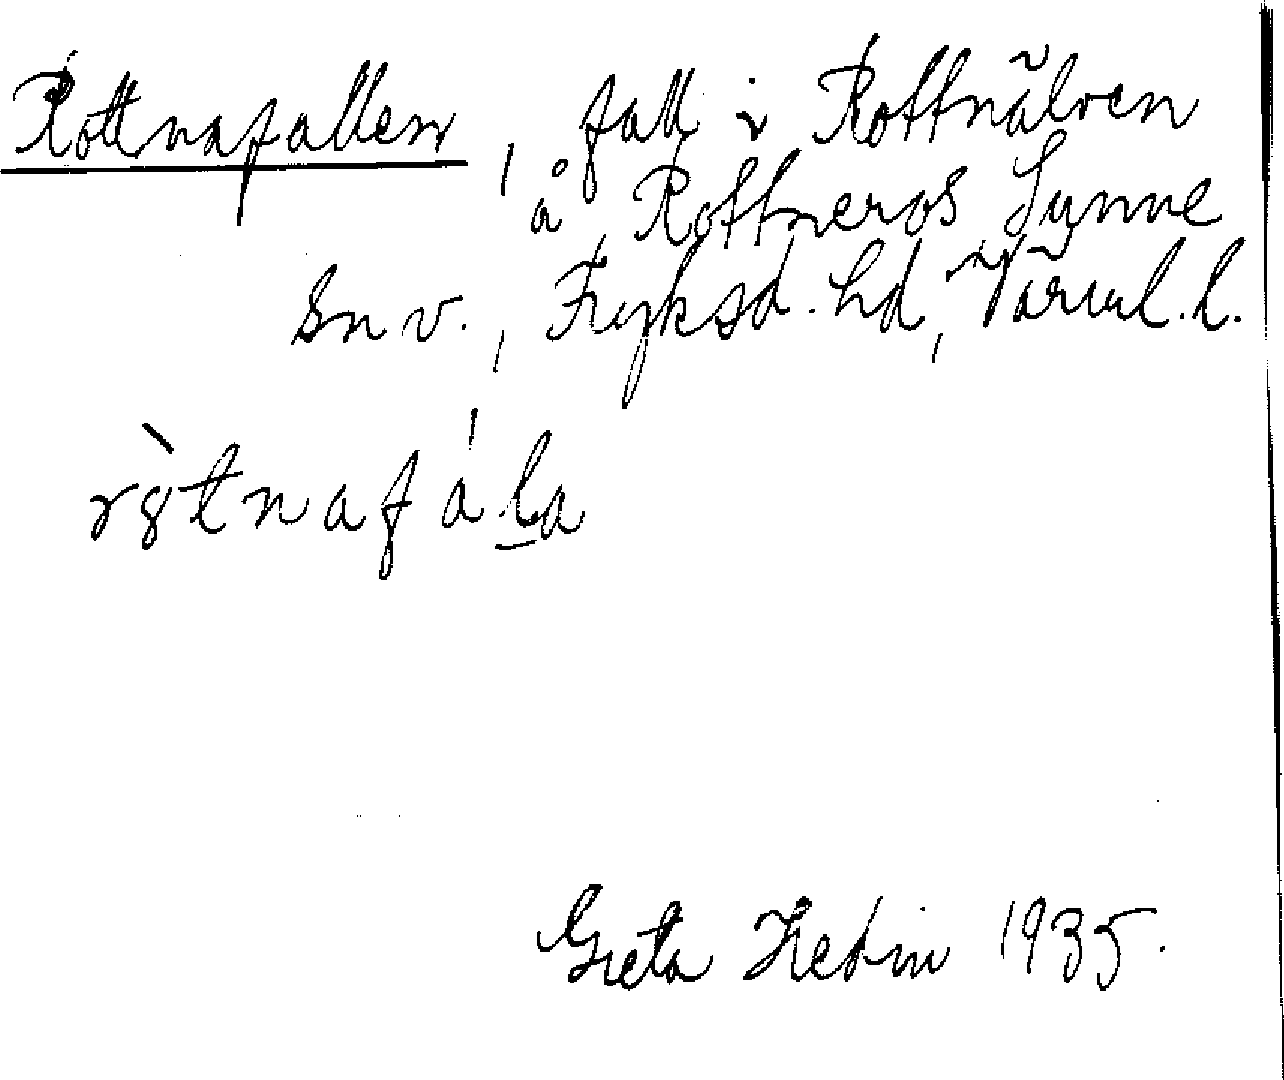 Rottnafallen, fall i Rottnälven
å Rottneros Sunne
sn v., Fryksd. hd, Värml. l.
rȣ̀tnafáḻa
Greta Hedin 1935.